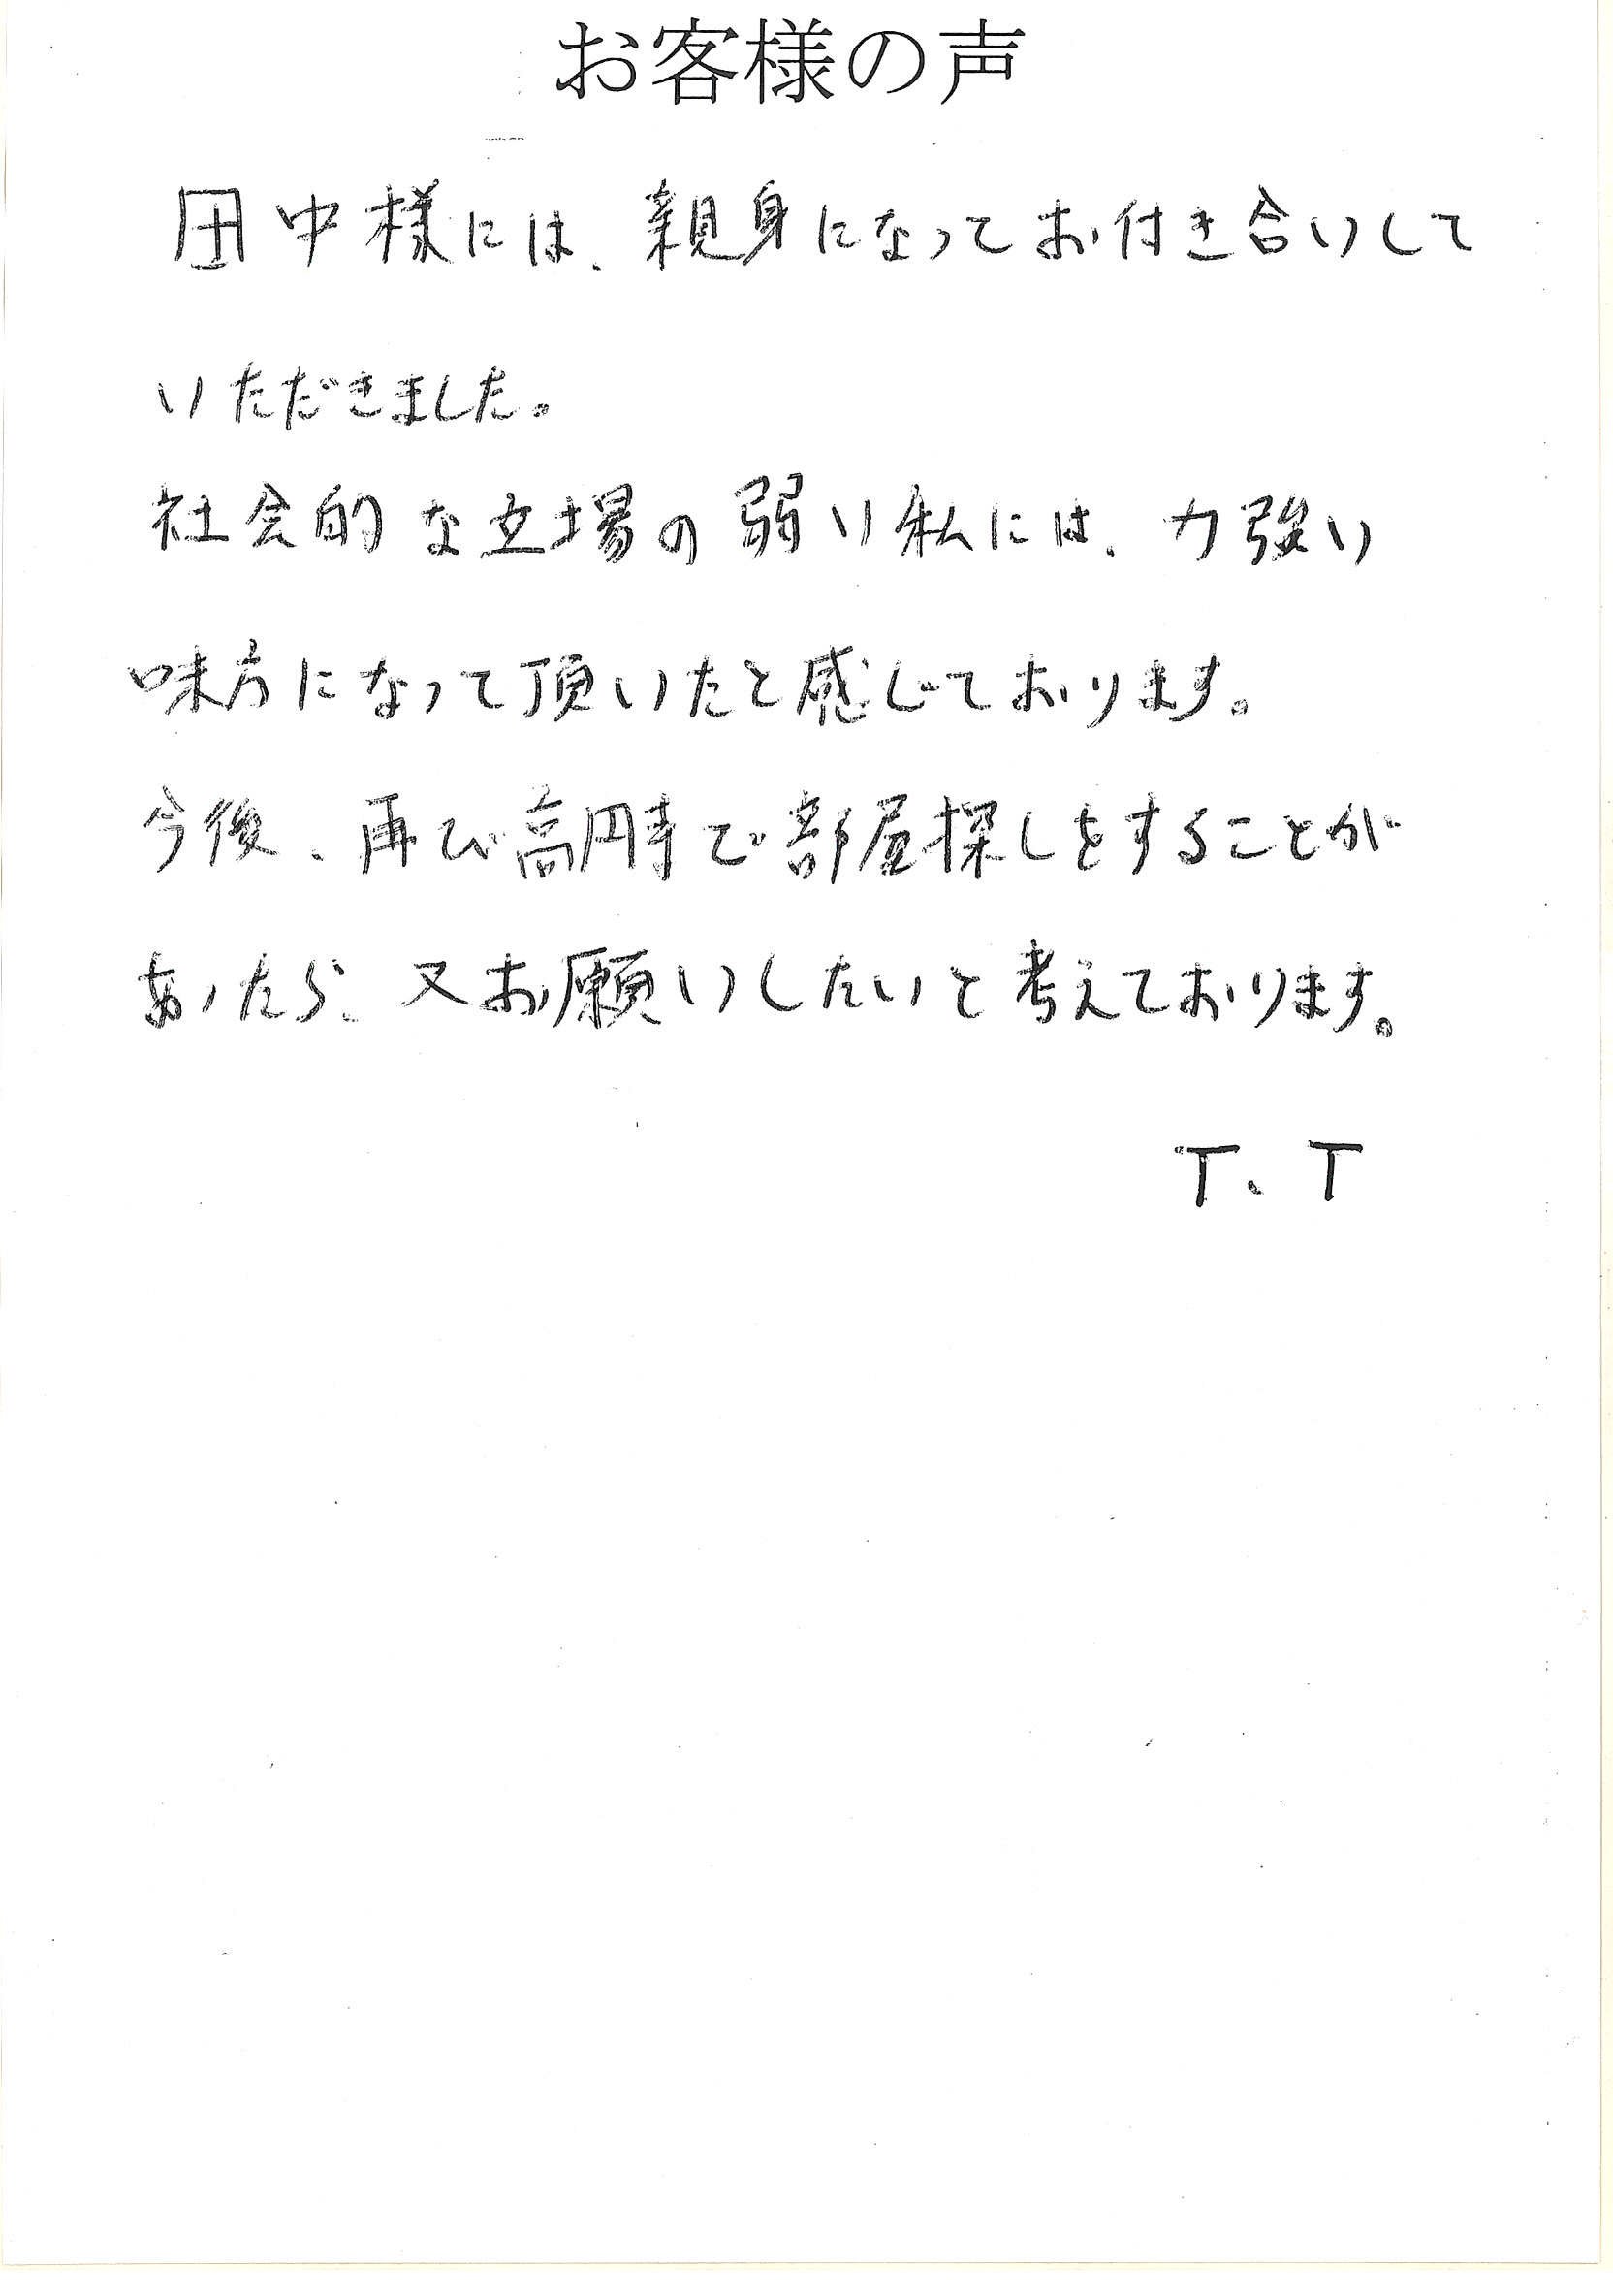 お客様の声
田中様には、親身になってお付き合いして
いただきました。
社会的な立場の弱い私には、力強い
味方になって頂いたと感じております。
今後、再び高円寺で部屋探しをすることが
あったら、又お願いしたいと考えております。
T.T